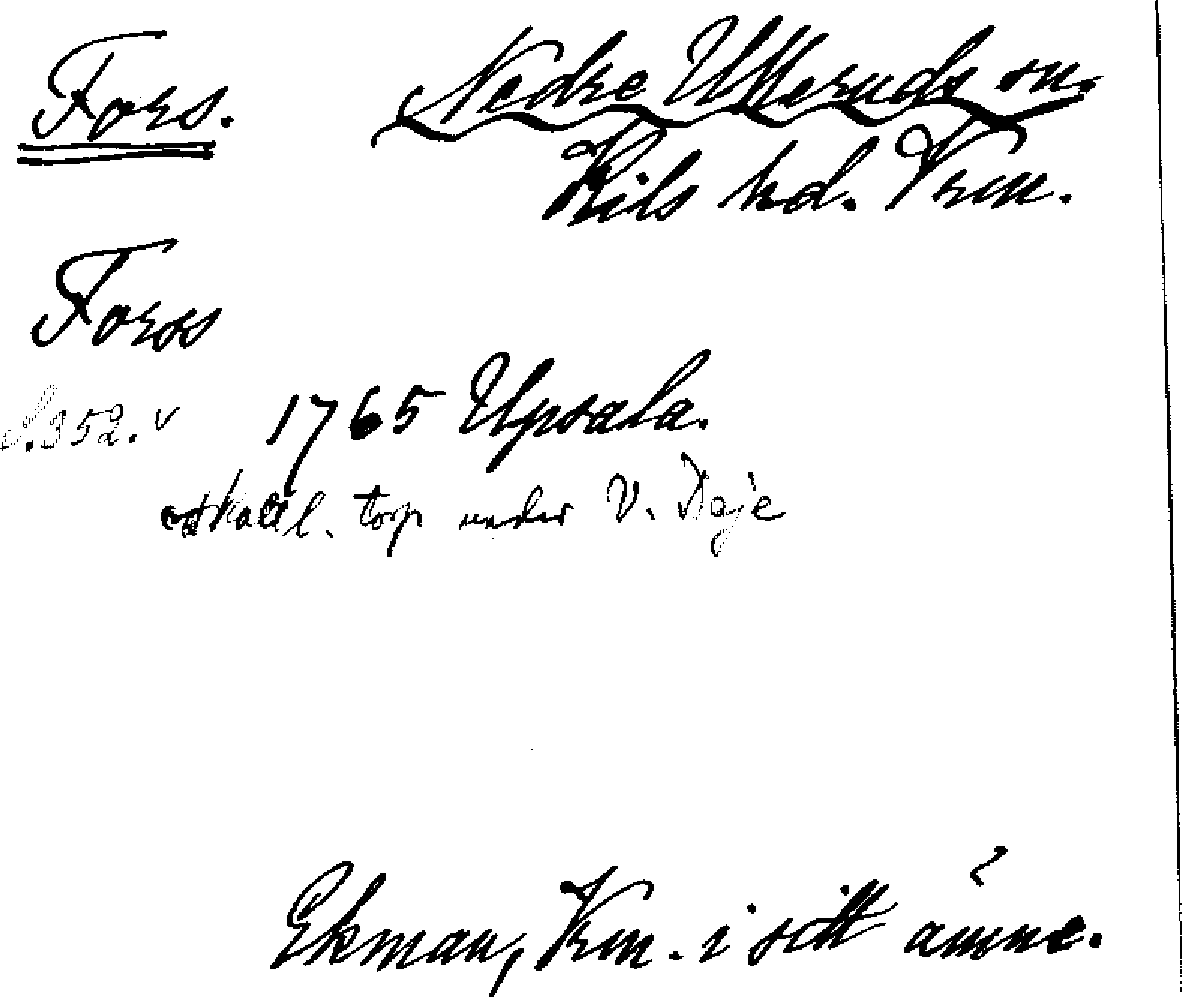 Fors. Nedre Ulleruds sn.
Kils hd. Vrm.
Forss
S. 352. v 1765 Upsala.
skattl. torp under V. Deje
Ekman, Vrm. i sitt ämne.